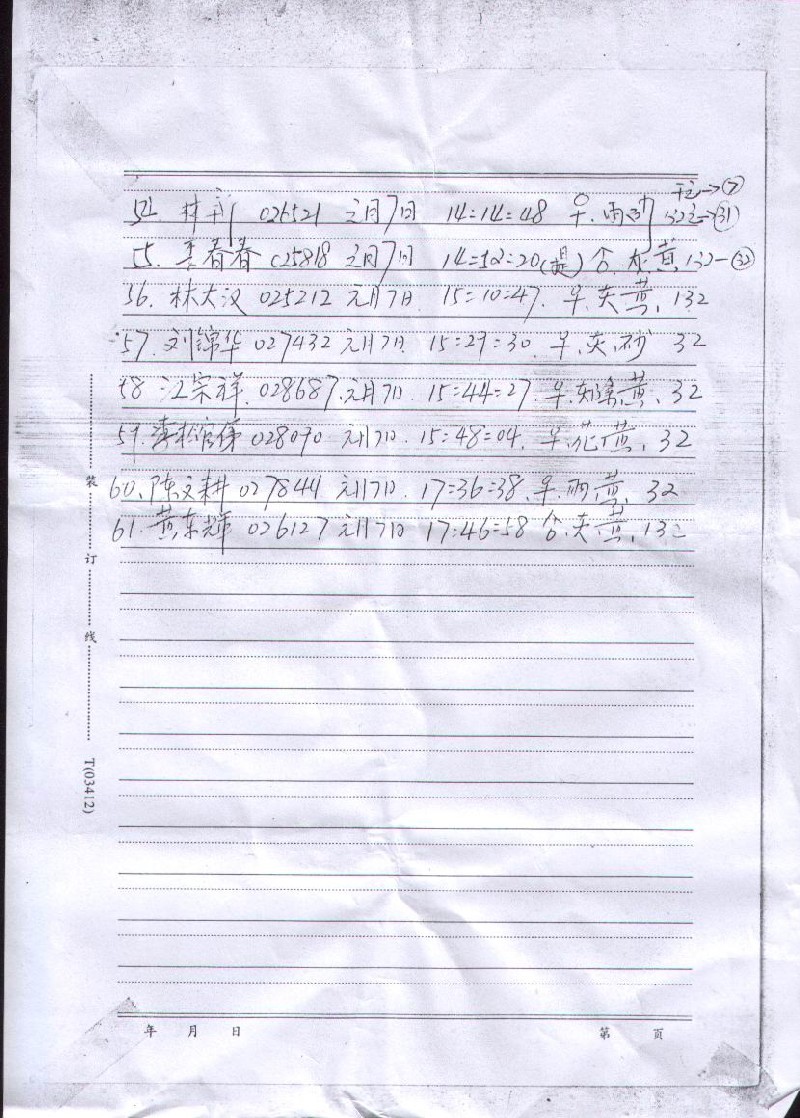 千主→⑦
54. 林新 026521 元月7日 14=14=48 早.雨砂 132主→㉛
55. 李春春 025818 元月7日 14=52=20(提) 合.灰黄 132-㉜
56. 林大汉 025212 元月7日. 15=10=47. 早.灰黄. 132
57. 刘锦华 027432 元月7日. 15=27=30. 早.灰.砂 32
58. 江宗祥. 028687. 元月7日. 15=44=27. 早.灰 黄. 32
59. 李松 028090 元月7日. 15=48=04. 早.花黄. 32
60. 陈文耕 027844 元月7日. 17=36=38. 早.雨黄. 32
61. 黄东辉 026127 元月7日 17:46=58 合.灰黄. 132
装
订
线
T(03412)
年 月 日
第 页